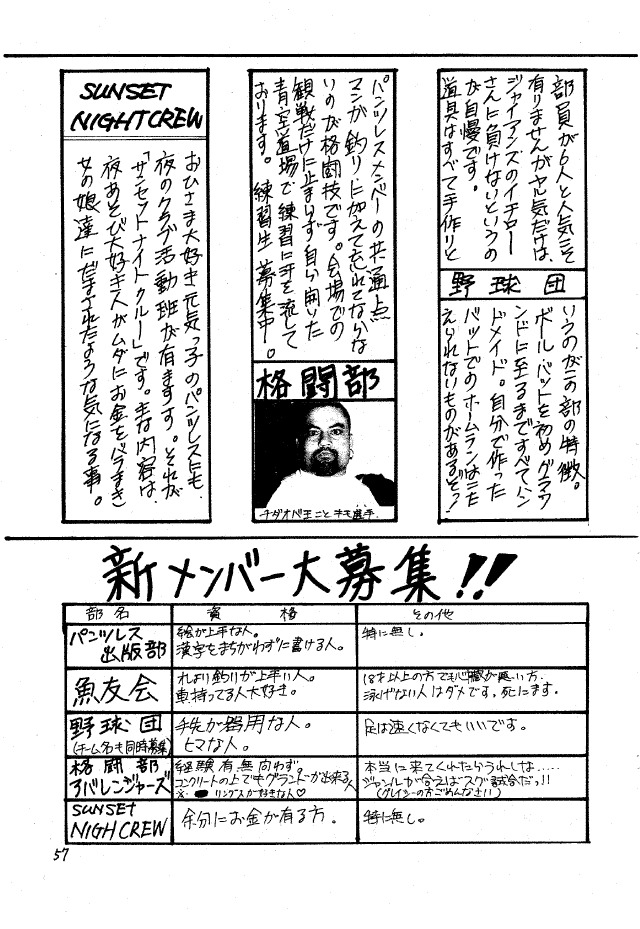 部員が6人と人気こそ
有りませんがヤル気だけは、
ジャイアンズのイチロー
さんに負けないというの
が自慢です。
道具はすべて手作りと
野球団
いうのがこの部の特徴。
ボール、バットを初めグラウ
ンドに至るまですべてハン
ドメイド。自分で作った
バットでのホームランはこた
えられないものがあるぞっ!
パンツレスメンバーの共通点
マンが、釣りに加えて忘れてならな
いのが格闘技です。会場での
観戦だけに止まらず自ら開いた
青空道場で練習に汗を流して
おります。練習生募集中。
格闘部
チダオペ王こと キモ選手.
SUNSET
NIGHTCREW
おひさま大好き元気っ子のパンツレスにも、
夜のクラブ活動班が有ります。それが
「サンセットナイトクルー」です。主な内容は、
夜あそび大好き人がムダにお金をバラまき
女の娘達にだまされたような気になる事。
新メンバー大募集!!
部名 資格 その他
パンツレス出版部
絵が上手な人。
漢字をまちがわずに書ける人。
特に無し。
魚友会
れより釣りが上手い人。
車持ってる人大好き。
18才以上の方でも心臓が悪い方、
泳げない人はダメです。死にます。
野球団
(チーム名も同時募集)
手先が器用な人。
ヒマな人。
足は速くなくてもいいです。
格闘部
アバレンジャーズ
経験有無問わず。
コンクリートの上でもグランドが出来る人
※リングスが好きな人♡
本当に来てくれたらうれしな.....
ジャンルが合えばスグ試合だっ!!
(グレイシーの方ごめんなさい)
SUNSET
NIGHCREW
余分にお金が有る方。
特に無し。
57